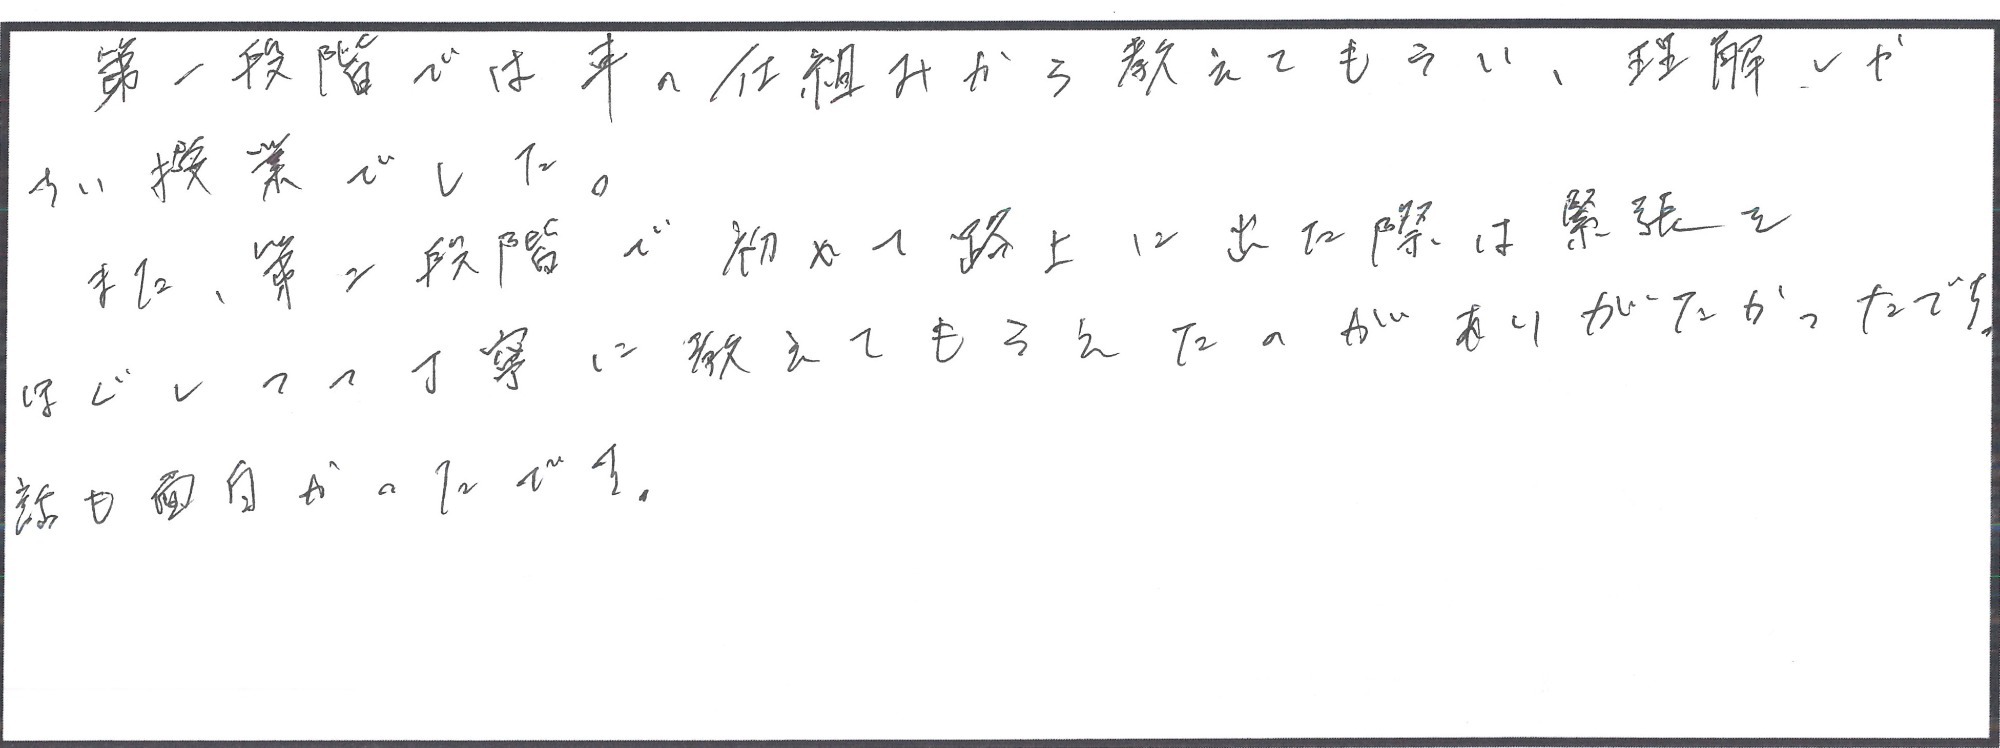 第一段階では車の仕組みから教えてもらい、理解しや
すい授業でした。
また、第2段階で初めて路上に出た際は緊張を
ほぐしつつ丁寧に教えてもらえたのがありがたかったです。
話も面白かったです。